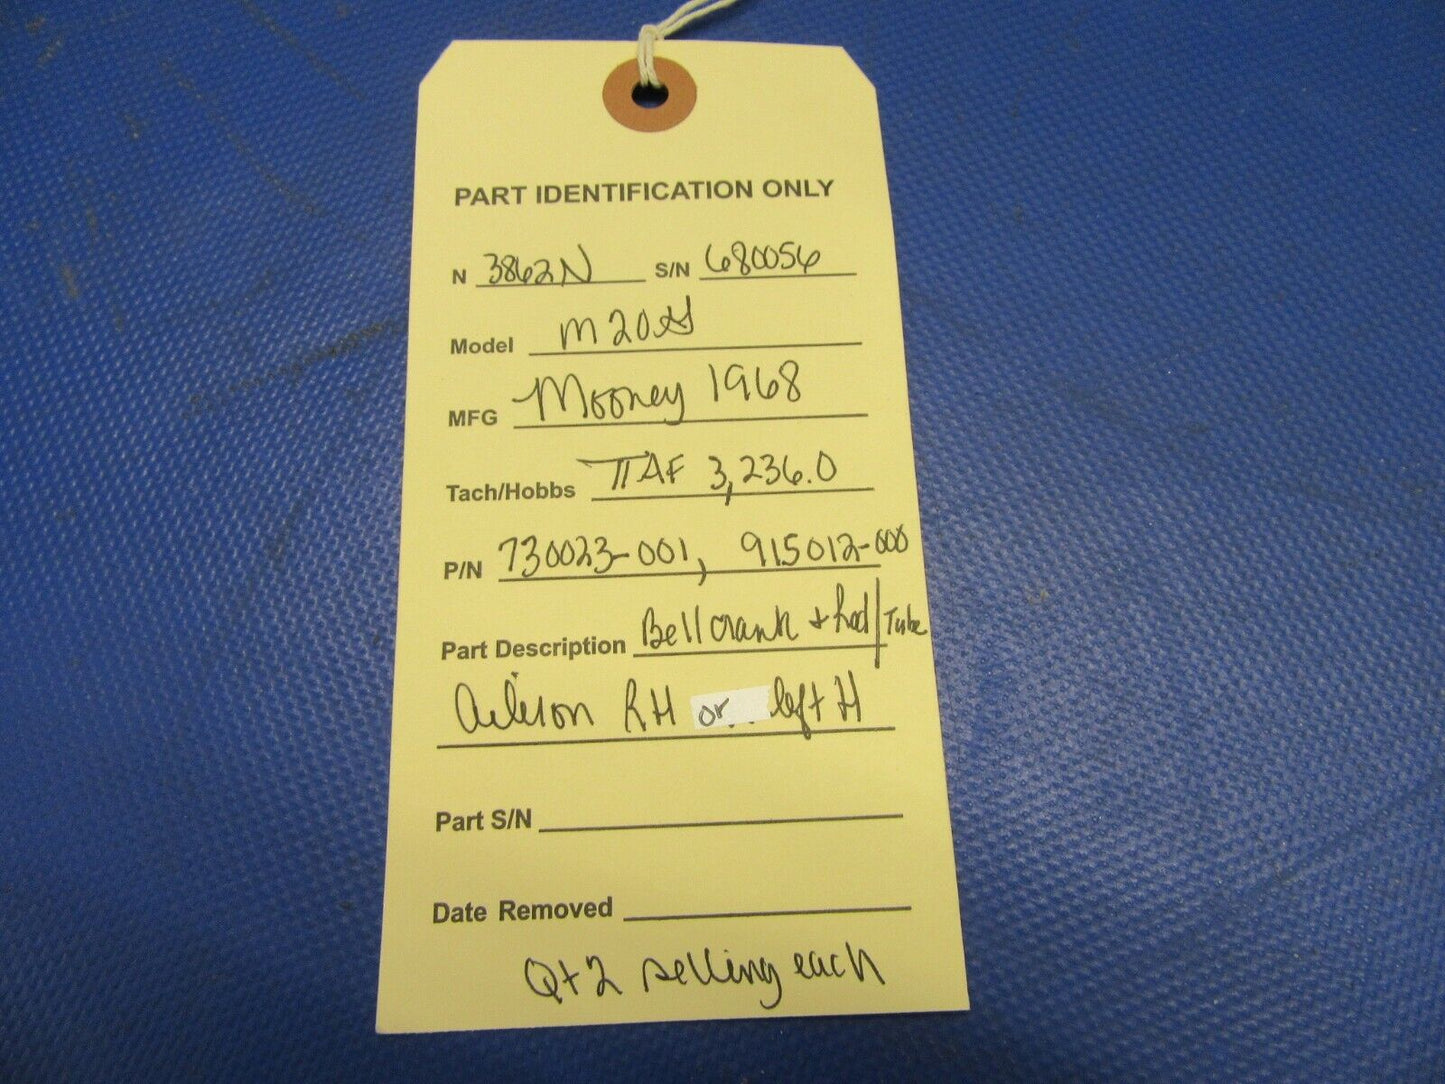 PART IDENTIFICATION ONLY
N 3862N S/N 680056
Model M20G
MFG Mooney 1968
Tach/Hobbs TTAF 3,236.0
P/N 730023-001, 915012-000
Part Description Bellcrank + Rod/Tube
Aileron RH or left H
Part S/N
Date Removed
Qt 2 selling each